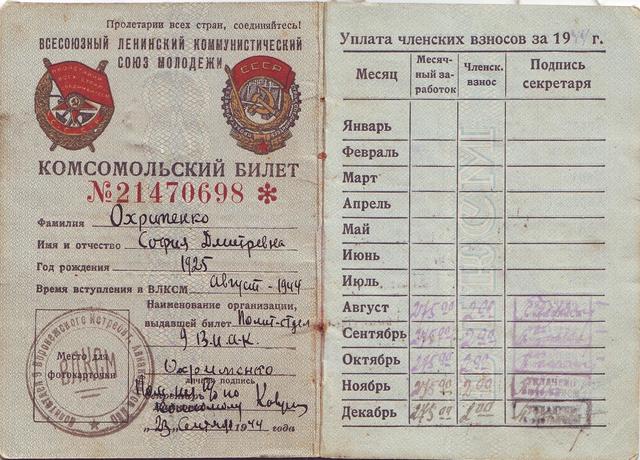 Пролетарии всех стран, соединяйтесь!
ВСЕСОЮЗНЫЙ ЛЕНИНСКИЙ КОММУНИСТИЧЕСКИЙ
СОЮЗ МОЛОДЕЖИ
СССР
КОМСОМОЛЬСКИЙ БИЛЕТ
№21470698 *
Фамилия Охрипенко
Имя и отчество София Дмитревна
Год рождения 1925
Время вступления в ВЛКСМ Август - 1944
Наименование организации,
выдавшей билет Полит-отдел
9 В.И.А.К.
Место для
фотокарточки
ВЛКСМ
Охрипенко
личная подпись
"23" Сентября 1944 года
Уплата членских взносов за 1944 г.
Месяц Месячный заработок Членск. взнос Подпись секретаря
Январь
Февраль
Март
Апрель
Май
Июнь
Июль
Август 275 00 2 00
Сентябрь 275 00 2 00
Октябрь 275 00 2 00
Ноябрь 275 00 2 00
Декабрь 275 00 2 00